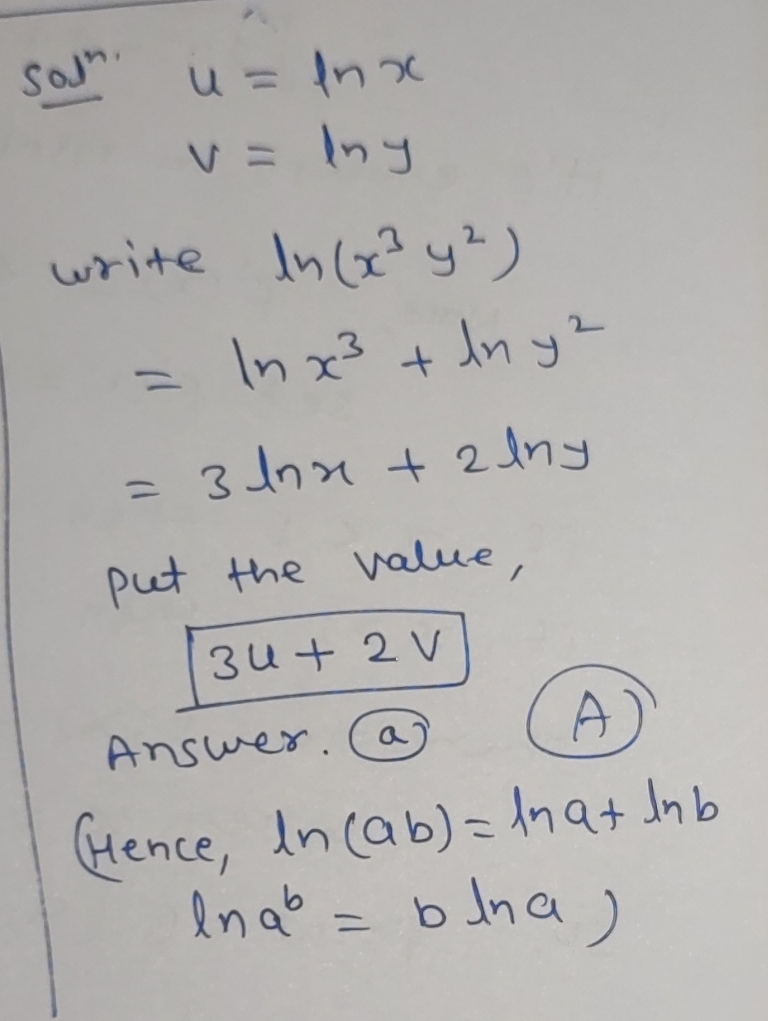 Solⁿ. u = ln x
v = ln y
write ln(x³ y²)
= ln x³ + ln y²
= 3 ln x + 2 ln y
put the value,
3u + 2v
Answer. (a) (A)
(Hence, ln(ab) = ln a + ln b
ln aᵇ = b ln a)